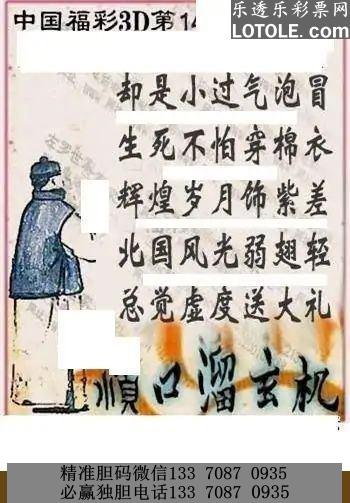 乐透乐彩票网
LOTOLE.COM
中国福彩3D第14
却是小过气泡冒
生死不怕穿棉衣
辉煌岁月饰紫差
北国风光弱翅轻
总觉虚度送大礼
顺口溜玄机
精准胆码微信133 7087 0935
必赢独胆电话133 7087 0935